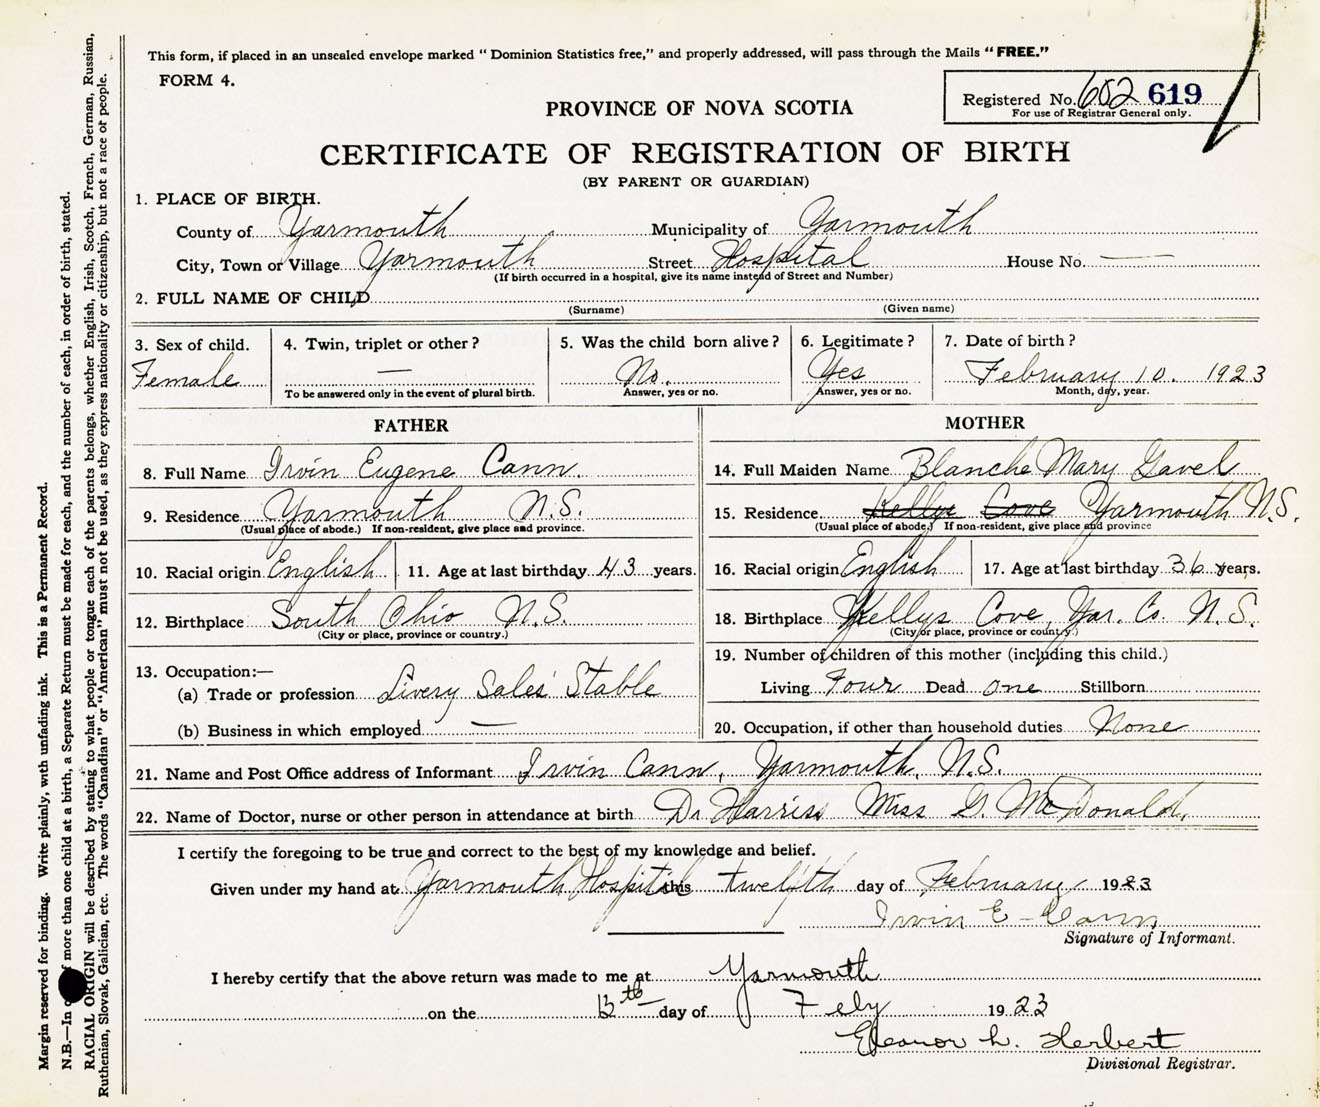 This form, if placed in an unsealed envelope marked " Dominion Statistics free," and properly addressed, will pass through the Mails " FREE."
FORM 4.
Registered No. 602 619
For use of Registrar General only.
PROVINCE OF NOVA SCOTIA
CERTIFICATE OF REGISTRATION OF BIRTH
(BY PARENT OR GUARDIAN)
1. PLACE OF BIRTH.
County of Yarmouth Municipality of Yarmouth
City, Town or Village Yarmouth Street Hospital House No. —
(If birth occurred in a hospital, give its name instead of Street and Number)
2. FULL NAME OF CHILD
(Surname) (Given name)
3. Sex of child. 4. Twin, triplet or other ? 5. Was the child born alive ? 6. Legitimate ? 7. Date of birth ?
Female — No. Yes February 10. 1923
To be answered only in the event of plural birth. Answer, yes or no. Answer, yes or no. Month, day, year.
FATHER MOTHER
8. Full Name Irvin Eugene Cann. 14. Full Maiden Name Blanche Mary Gavel
9. Residence Yarmouth N.S. 15. Residence Kellys Cove Yarmouth N.S.
(Usual place of abode.) If non-resident, give place and province. (Usual place of abode.) If non-resident, give place and province
10. Racial origin English 11. Age at last birthday 43 years. 16. Racial origin English 17. Age at last birthday 36 years.
12. Birthplace South Ohio N.S. 18. Birthplace Kellys Cove, Yar. Co. N.S.
(City or place, province or country.) (City or place, province or country.)
13. Occupation:— 19. Number of children of this mother (including this child.)
(a) Trade or profession Livery Sales Stable Living Four Dead one Stillborn
(b) Business in which employed — 20. Occupation, if other than household duties None
21. Name and Post Office address of Informant Irvin Cann, Yarmouth, N.S.
22. Name of Doctor, nurse or other person in attendance at birth Dr Harriss Miss G. McDonald,
I certify the foregoing to be true and correct to the best of my knowledge and belief.
Given under my hand at Yarmouth Hospital this twelfth day of February 1923
Irvin E - Cann,
Signature of Informant.
I hereby certify that the above return was made to me at Yarmouth
on the 13th day of Feby 1923
Eleanor L. Herbert
Divisional Registrar.
Margin reserved for binding. Write plainly, with unfading ink. This is a Permanent Record.
N.B.—In of more than one child at a birth, a Separate Return must be made for each, and the number of each, in order of birth, stated.
RACIAL ORIGIN will be described by stating to what people or tongue each of the parents belongs, whether English, Irish, Scotch, French, German, Russian,
Ruthenian, Slovak, Galician, etc. The words "Canadian" or "American" must not be used, as they express nationality or citizenship, but not a race of people.